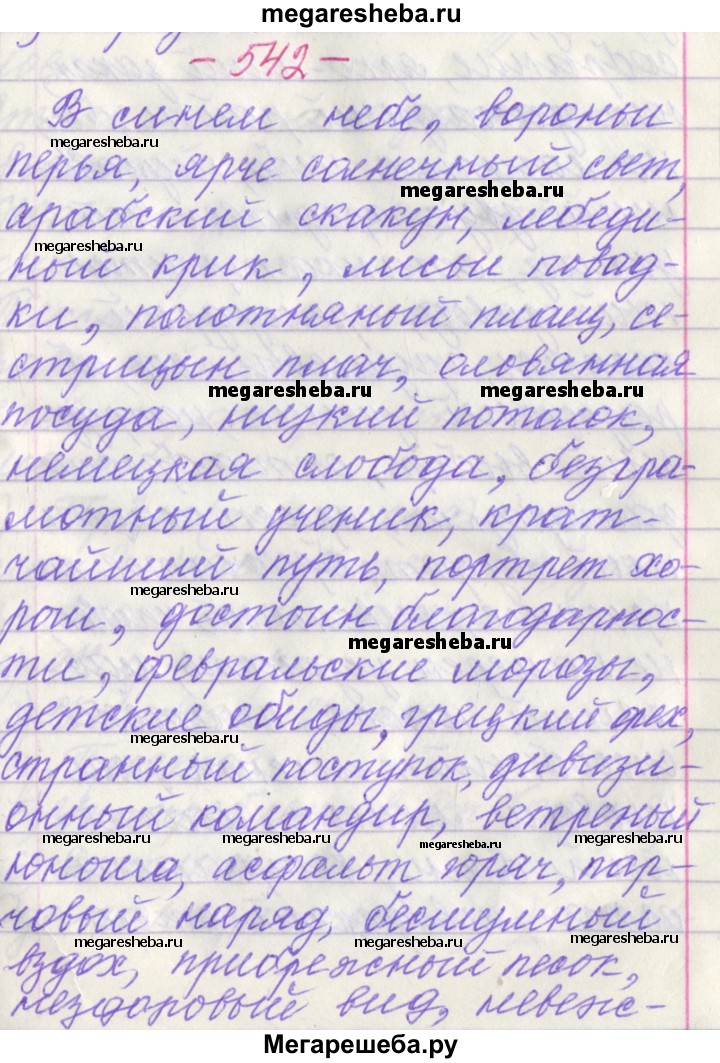 megaresheba.ru
- 542 -
В синем небе, вороньи
megaresheba.ru
перья, ярче солнечный свет,
megaresheba.ru
арабский скакун, лебеди-
megaresheba.ru
ный крик, лисьи повад-
ки, полотняный плащ, се-
стрицын плач, оловянная
megaresheba.ru megaresheba.ru
посуда, низкий потолок,
немецкая слобода, безгра-
мотный ученик, крат-
чайший путь, портрет хо-
megaresheba.ru
рош, достоин благодарнос-
megaresheba.ru
ти, февральские морозы,
детские обиды, грецкий орех,
megaresheba.ru
странный поступок, дивизи-
онный командир, ветреный
megaresheba.ru megaresheba.ru megaresheba.ru megaresheba.ru
юноша, асфальт горяч, пар-
човый наряд, бесшумный
megaresheba.ru megaresheba.ru
вздох, прибрежный песок,
нездоровый вид, невеж-
Мегарешеба.ру